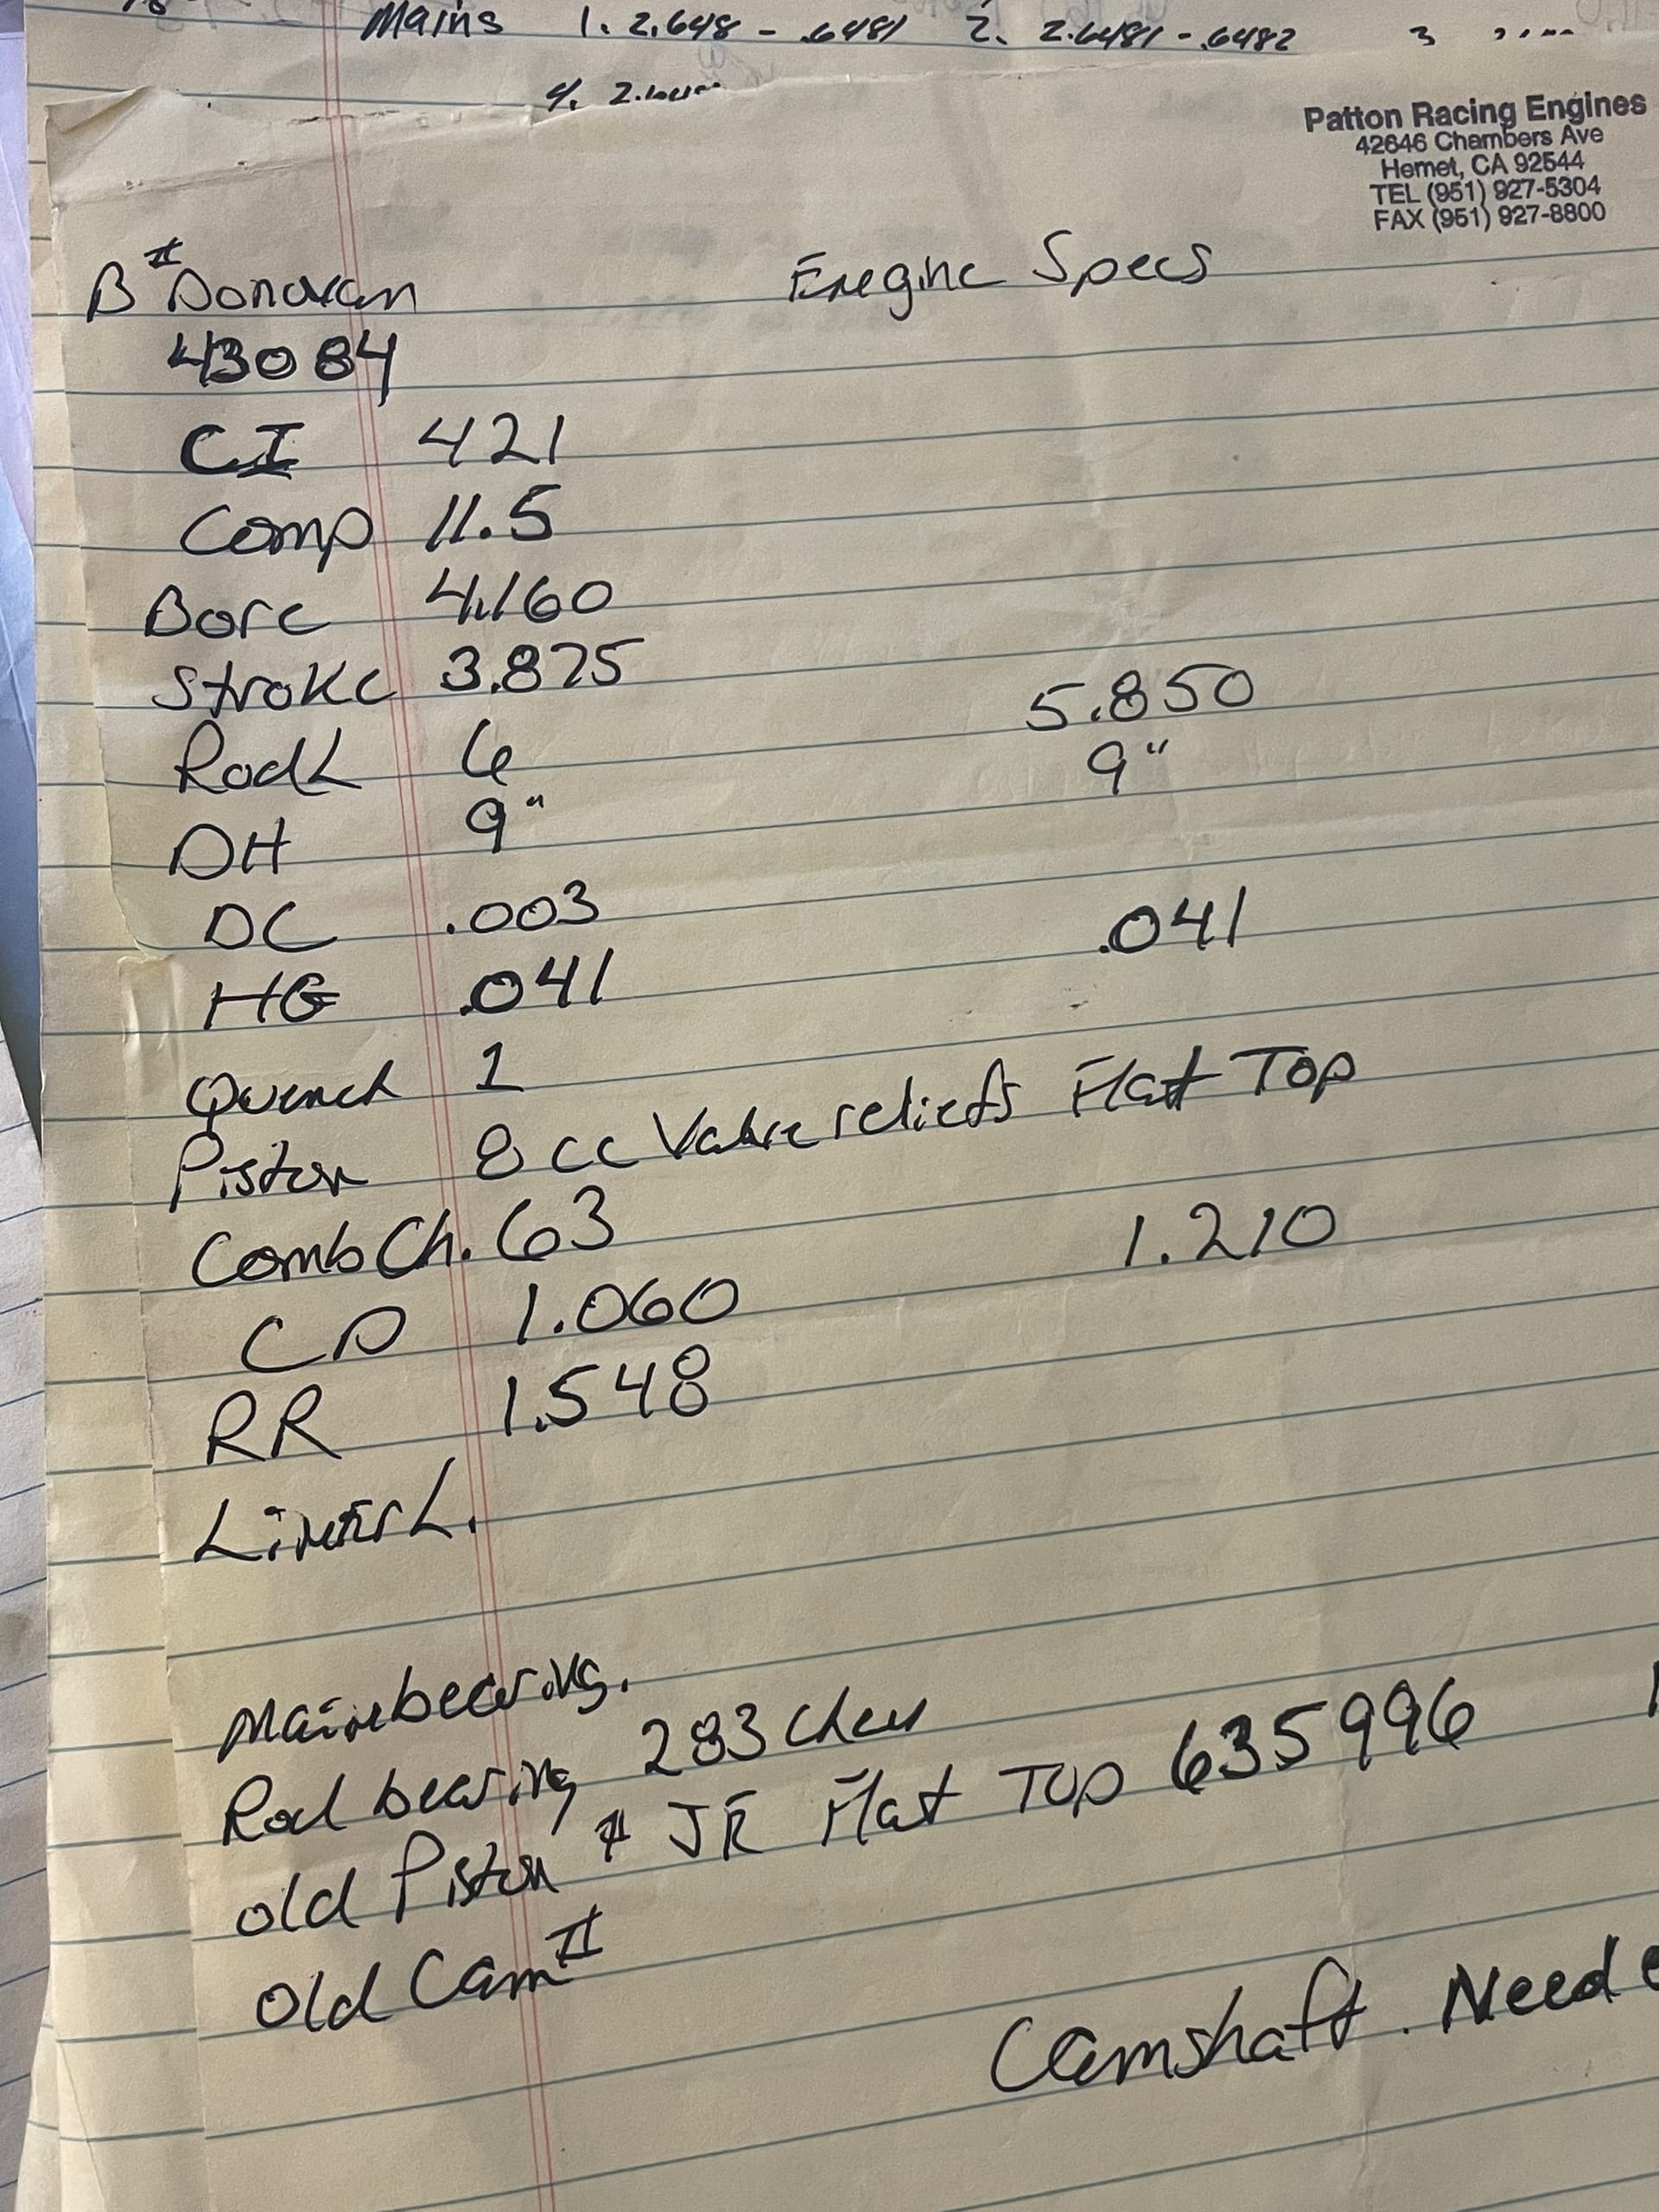 Mains 1. 2.648 - .6481 2. 2.6481 - .6482 3
4. 
Patton Racing Engines
42646 Chambers Ave
Hemet, CA 92544
TEL (951) 927-5304
FAX (951) 927-8800
B# Donovan
Enegine Specs
43084
CI 421
Comp 11.5
Bore 4.160
Stroke 3.875
Rod L 6 5.850
DH 9" 9"
DC .003
HG .041 .041
Quench 1
Piston 8 cc Valve reliefs Flat Top
Comb Ch. 63
CD 1.060 1.210
RR 1.548
L.
Main bearing.
Rod bearing 283 Chev
old Piston # JE Flat Top 635996
Old Cam #
Camshaft. Need